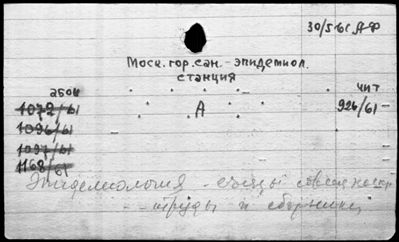 30/5-61г. АФ
Моск. гор. сан. - эпидемиол.
станция
абон
чит
1072/61
А
926/61
1096/61
1097/61
1168/61
Эпидемиология - съезды
- труды и сборники